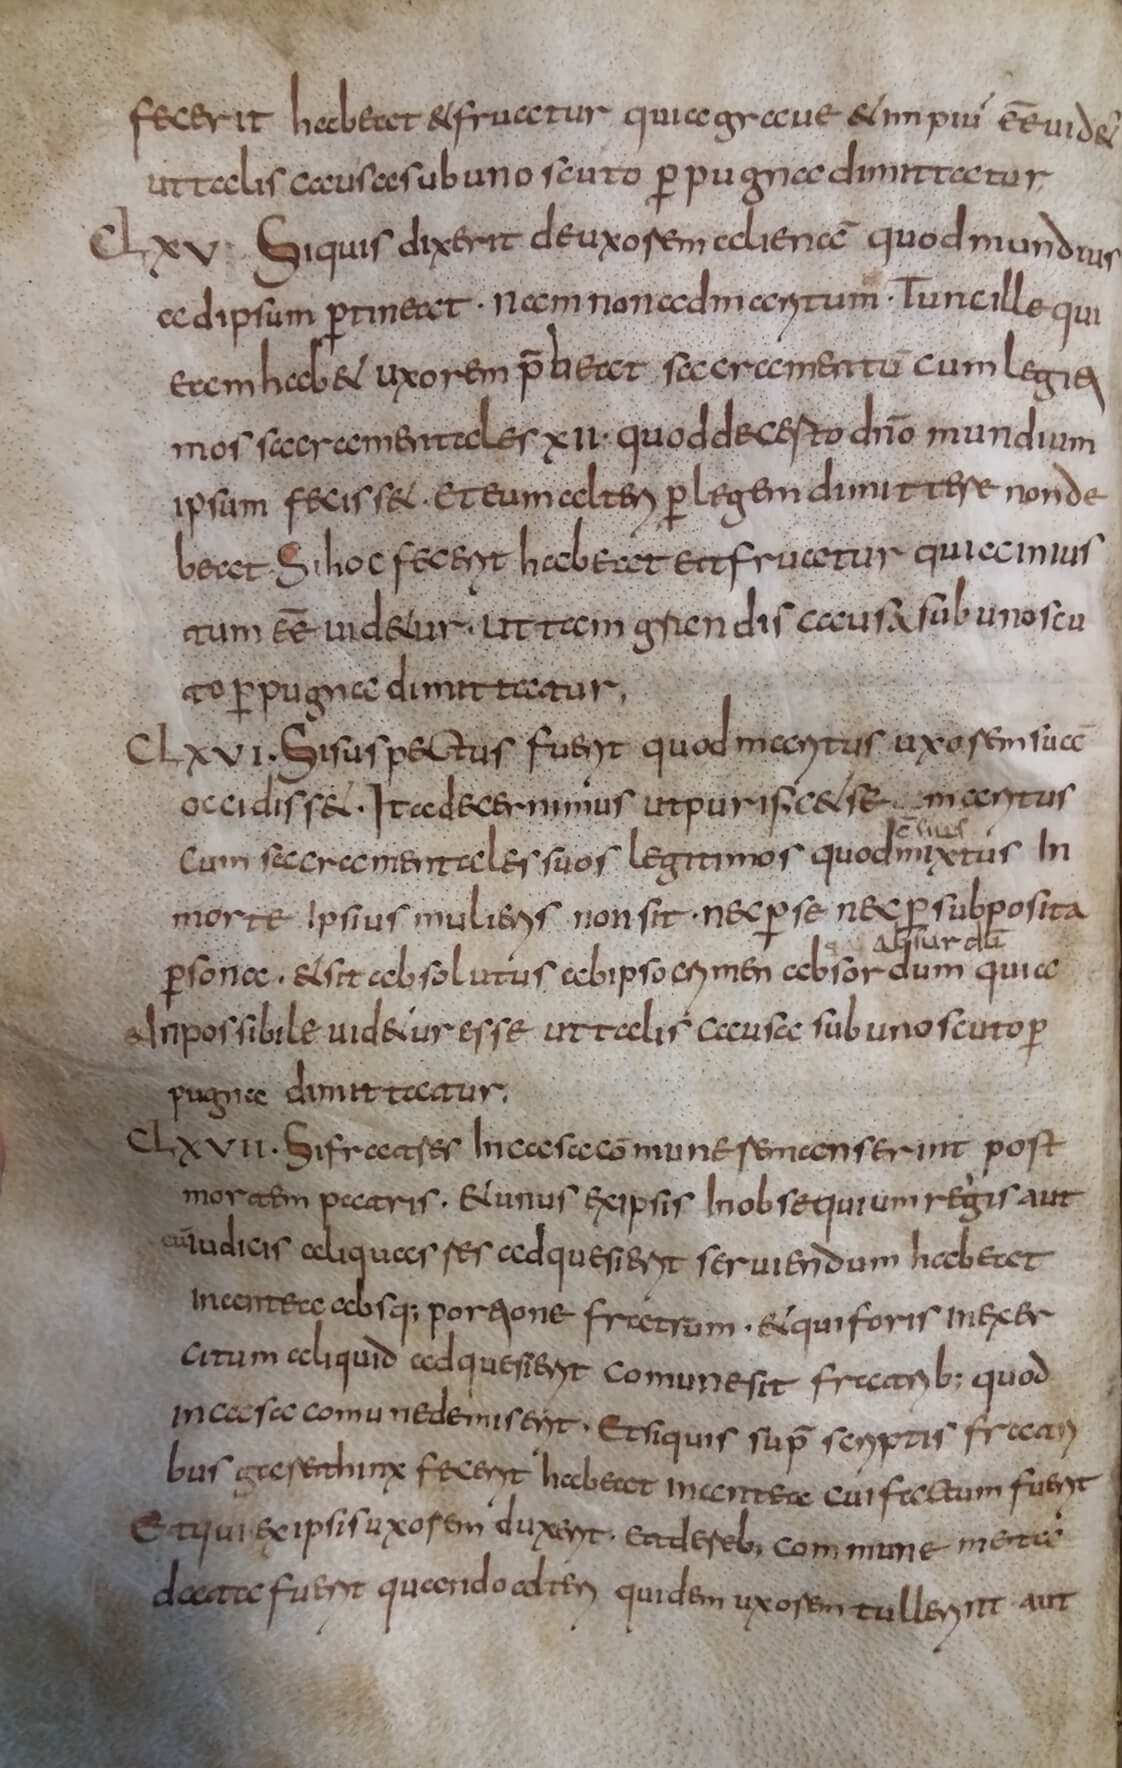 fecerit habeat & fruatur quia graue & inpiu' eē uid&
ut talis causa sub uno scuto p̱ pugna dimittatur
CLXV. Si quis dixerit de uxorem alienā quod mundius
ad ipsum p̱tineat · nam non ad maritum · Tunc ille qui
eam hab& uxorem p̄beat sacramentū cum legiti
mos sacramentales XII · quod de certo dn̄o mundium
ipsum feciss& · Et eum aliter p̱ legem dimittere non de
beat · Si hoc fecerit habeat et fruatur quia inius
tum eē uid&ur · ut tam grandis causa sub uno scu
to p̱ pugna dimittatur,
CLXVI. Si suspectus fuerit quod maritus uxorem suā
occidiss& · Ita decernimus ut purific& se maritus
c̄suus
cum sacramentales suos legitimos quod mixtus In
morte Ipsius mulieris non sit · nec p̱ se nec p̱ subposita
absurdū
p̱sona · & sit absolutus ab ipso crimen absordum quia
& Inpossibile uid&ur esse ut talis causa sub uno scuto p̱
pugna dimittatur.
CLXVII. Si fratres In casa cōmune remanserint post
mortem patris · & unus ex ipsis In obsequium regis aut
cū iudicis aliquas res adquesierit seruiendum habeat
in antea absq; portione fratrum · & qui foris in exer
citum aliquid adquesierit comune sit fratrib; quod
in casa comune demiserit · Et si quis sup̄ scriptis fratri
bus garethinx fecerit habeat in antea cui factum fuerit
Et qui ex ipsis uxorem duxerit · et de reb; commune meta
data fuerit quando alteri quidem uxorem tullerint aut